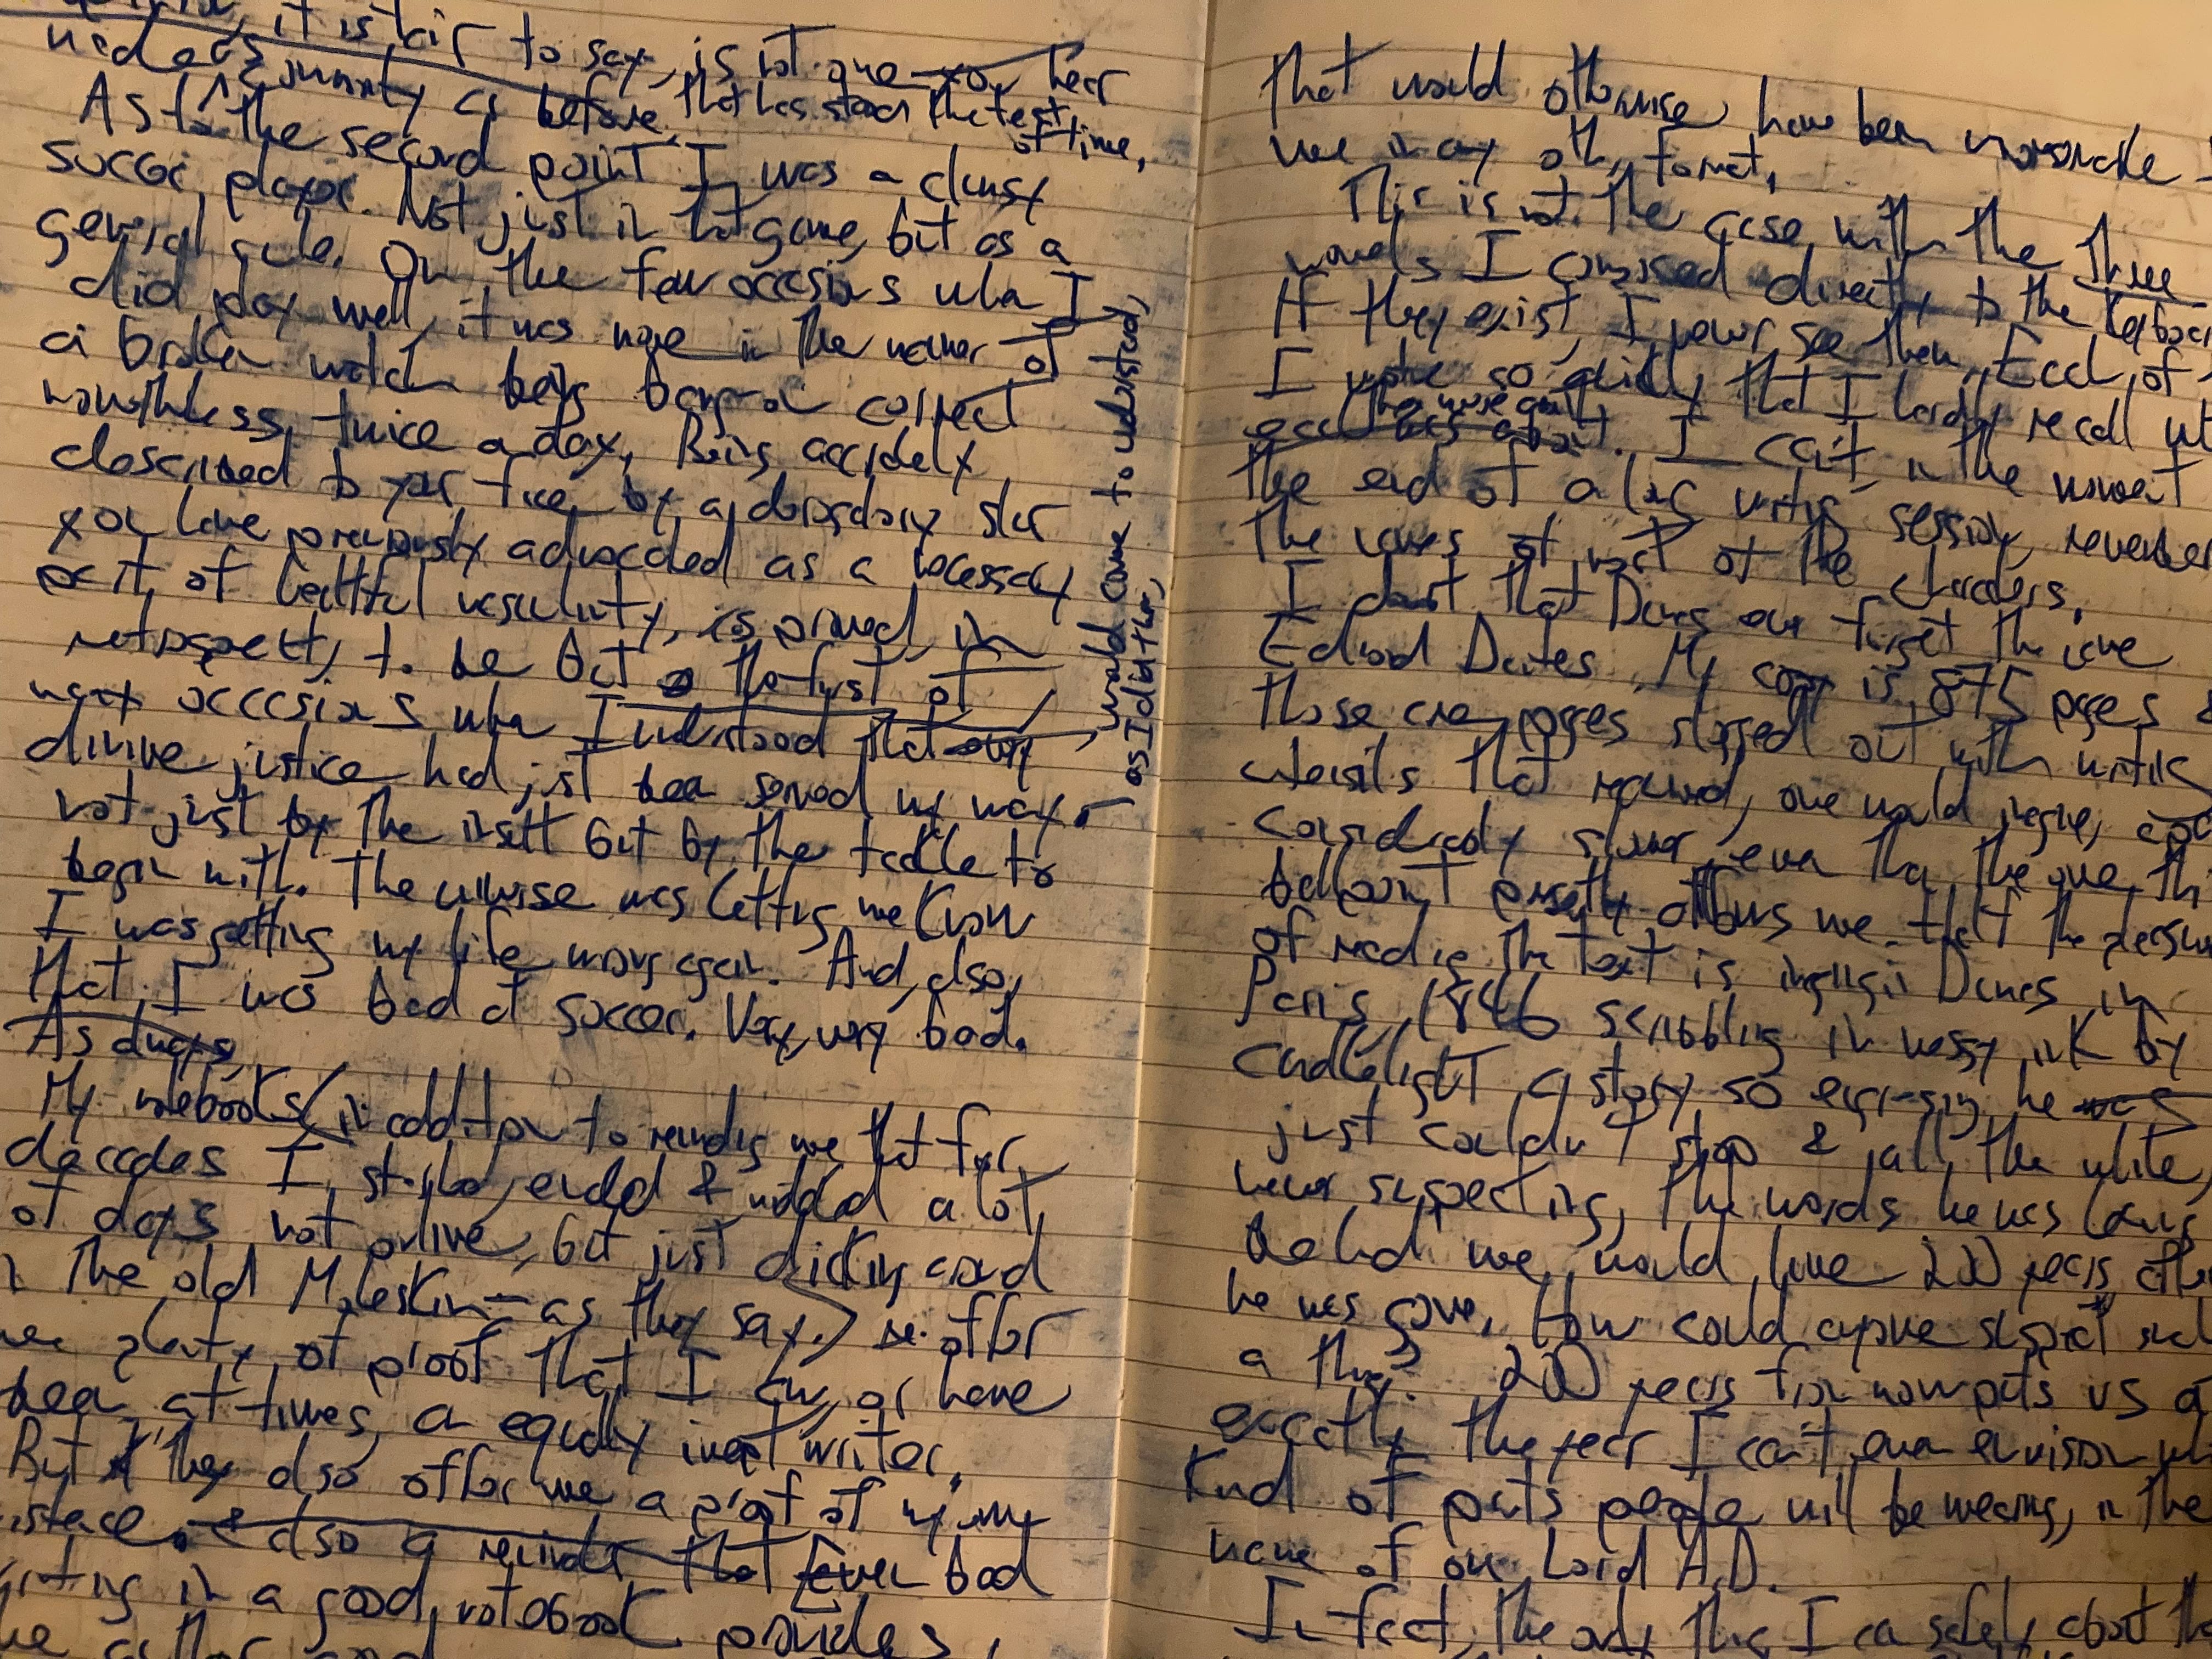 it is fair to say, is not one you hear
As to the second point, I was a clumsy
soccer player. Not just in that game, but as a
general rule. On the few occasions when I
did play well, it was more in the manner of
a broken watch being correct
nonetheless, twice a day. Being accidentally
described to your face by a derogatory slur
you have previously advocated as a necessary
part of healthful masculinity, is proved, in
retrospect, to be but the first of
many occasions when I understood that
would come to understand,
as I did then,
divine justice had just been served my way.
not just by the insult but by the tackle to
begin with. The universe was letting me know
I was getting my life wrong again. And, also,
that I was bad at soccer. Very, very bad.
As always,
My notebooks (in addition to reminding me that for
decades I started, ended & middled a lot
of days not online, but just dicking around
in the old Moleskin – as they say.) offer
me plenty of proof that I am, or have
been at times, an equally inept writer.
But they also offer me a proof of my own
existence. & also a reminder that Even bad
writing in a good notebook provides
that would otherwise have been
me in any other format.
This is not the case with the three
novels I composed directly to the keyboard
If they exist, I never see them. Each of
I wrote so quickly that I hardly recall
I can't, in the moment
the end of a long writing session, remember
the names of most of the characters.
I doubt that Dumas ever forgot the name
Edmond Dantes. My copy is 875 pages &
those are pages slogged out with writing
utensils that required, one would imagine,
considerably slower, even than the one this
ballpoint presently affords me. Half the pleasure
of reading the text is imagining Dumas in
Paris, 1846 scribbling in messy ink by
candlelight a story so engrossing he was
just couldn't stop & all the while,
never suspecting, the words he was leaving
behind me would live 200 years after
he was gone. How could anyone suspect such
a thing? 200 years from now puts us at
exactly the year I can't even envision what
kind of pants people will be wearing, in the
name of our Lord A.D.
In fact, the only thing I can safely about the